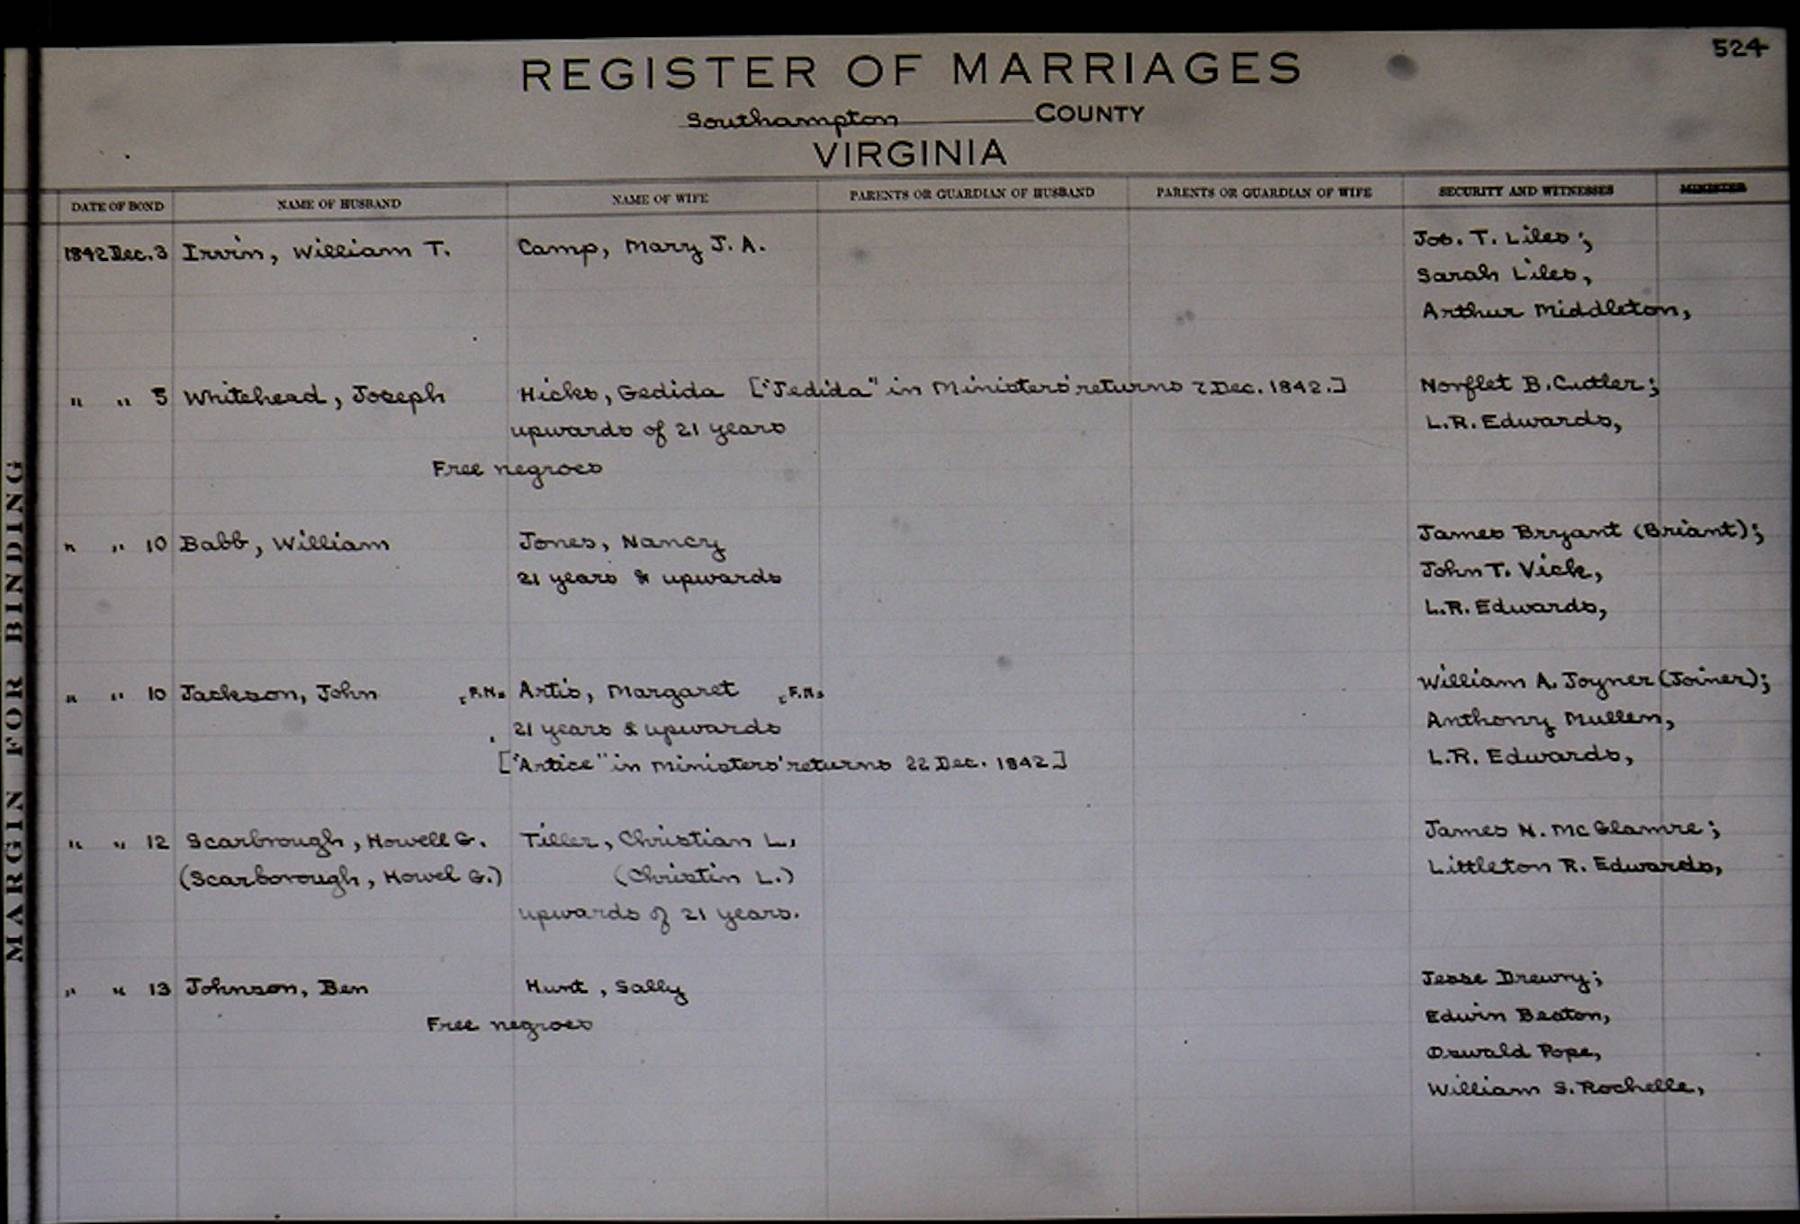 524
REGISTER OF MARRIAGES
Southampton COUNTY
VIRGINIA
DATE OF BOND NAME OF HUSBAND NAME OF WIFE PARENTS OR GUARDIAN OF HUSBAND PARENTS OR GUARDIAN OF WIFE SECURITY AND WITNESSES MINISTER
1842 Dec. 3 Irvin, William T. Camp, Mary J. A. Jos. T. Liles;
Sarah Liles,
Arthur Middleton,
" " 5 Whitehead, Joseph Hicks, Gedida ["Jedida" in Ministers' returns 7 Dec. 1842.] Norflet B. Cutler;
upwards of 21 years L.R. Edwards,
Free negroes
" " 10 Babb, William Jones, Nancy James Bryant (Briant);
21 years & upwards John T. Vick,
L.R. Edwards,
" " 10 Jackson, John [F.N.] Artis, Margaret [F.N.] William A. Joyner (Joiner);
21 years & upwards Anthony Mullen,
["Artice" in Ministers' returns 22 Dec. 1842] L.R. Edwards,
" " 12 Scarbrough, Howell G. Tiller, Christian L. James N. McGlamre;
(Scarborough, Howel G.) (Christin L.) Littleton R. Edwards,
upwards of 21 years.
" " 13 Johnson, Ben Hunt, Sally Jesse Drewry;
Free negroes Edwin Beaton,
Oswald Pope,
William S. Rochelle,
MARGIN FOR BINDING